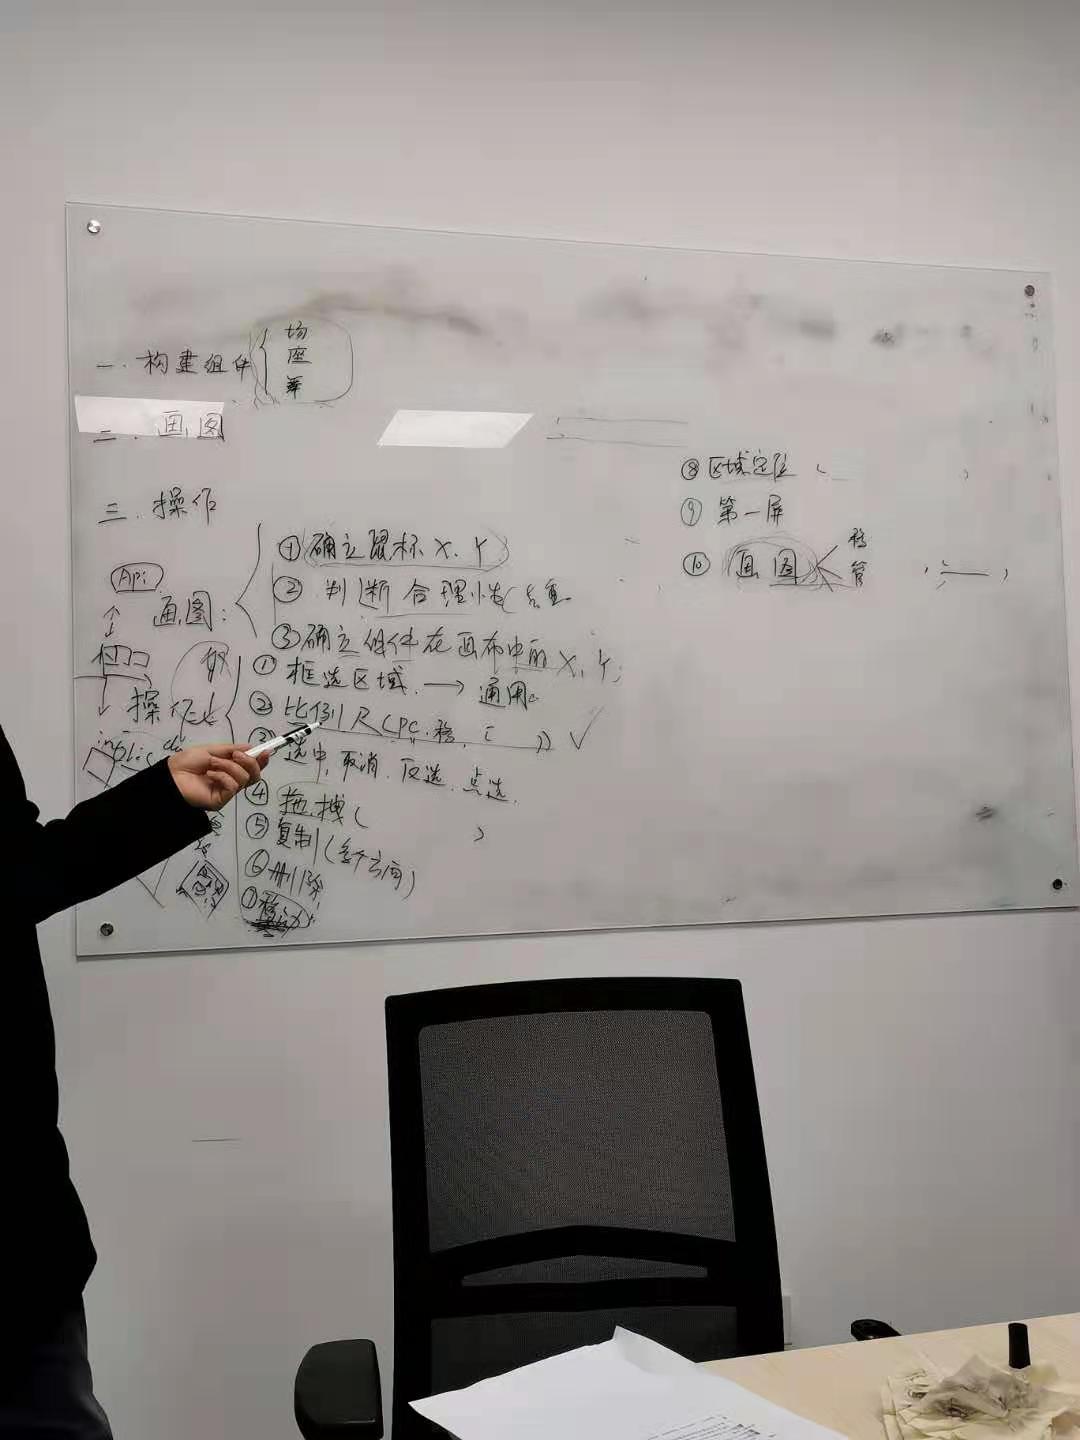 一.构建组件
场
座
二.画图
三.操作
Api
画图：
①确立鼠标X、Y
②判断合理性（
③确立组件在画布中的X、Y；
接口
操作
①框选区域.→通用。
②比例尺（PC.移. ）√
③选中、取消、反选、点选.
④拖拽（ ）
⑤复制（多个方向）
⑥删除
⑦
⑧区域定位（ ）
⑨第一屏
⑩画图